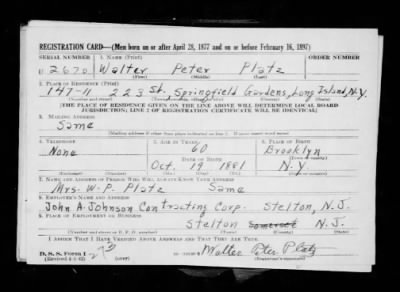 REGISTRATION CARD—(Men born on or after April 28, 1877 and on or before February 16, 1897)
SERIAL NUMBER 1. NAME (Print) ORDER NUMBER
U 2670 Walter Peter Platz
(First) (Middle) (Last)
2. PLACE OF RESIDENCE (Print)
147-11 223 St. Springfield Gardens, Long Island, N.Y.
(Number and street) (Town, township, village, or city) (County) (State)
[THE PLACE OF RESIDENCE GIVEN ON THE LINE ABOVE WILL DETERMINE LOCAL BOARD
JURISDICTION; LINE 2 OF REGISTRATION CERTIFICATE WILL BE IDENTICAL]
3. MAILING ADDRESS
Same
(Mailing address if other than place indicated on line 2. If same insert word same)
4. TELEPHONE 5. AGE IN YEARS 6. PLACE OF BIRTH
None 60 Brooklyn
DATE OF BIRTH (Town or county)
Oct. 19 1881 N.Y.
(Exchange) (Number) (Mo.) (Day) (Yr.) (State or country)
7. NAME AND ADDRESS OF PERSON WHO WILL ALWAYS KNOW YOUR ADDRESS
Mrs. W. P. Platz Same
8. EMPLOYER'S NAME AND ADDRESS
John A. Johnson Contracting Corp. Stelton, N.J.
9. PLACE OF EMPLOYMENT OR BUSINESS
Stelton Somerset N.J.
(Number and street or R. F. D. number) (Town) (County) (State)
I AFFIRM THAT I HAVE VERIFIED ABOVE ANSWERS AND THAT THEY ARE TRUE.
D. S. S. Form 1
(Revised 4-1-42) (over) Walter Peter Platz